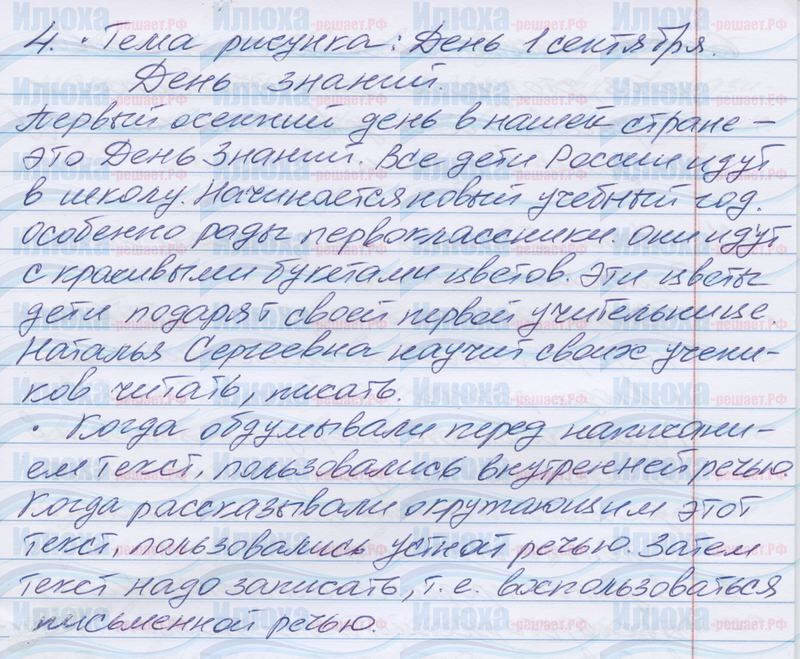 4. • Тема рисунка: День 1 сентября.
День знаний.
Первый осенний день в нашей стране –
это День Знаний. Все дети России идут
в школу. Начинается новый учебный год.
Особенно рады первоклассники. Они идут
с красивыми букетами цветов. Эти цветы
дети подарят своей первой учительнице.
Наталья Сергеевна научит своих учени-
ков читать, писать.
• Когда обдумывали перед написани-
ем текст, пользовались внутренней речью.
Когда рассказывали окружающим этот
текст, пользовались устной речью. Затем
текст надо записать, т.е. воспользоваться
письменной речью.